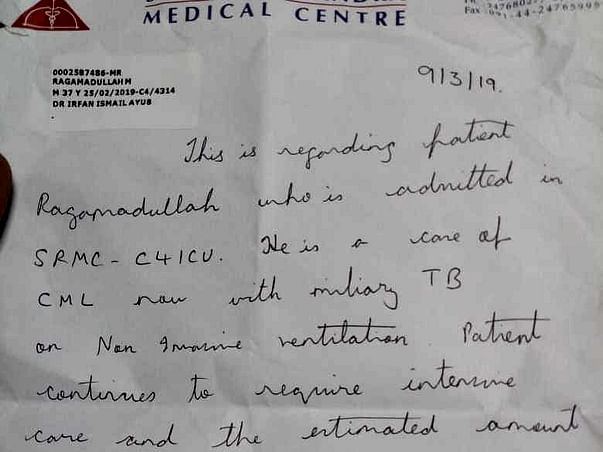 MEDICAL CENTRE
0002587486-MR
RAGAMADULLAH M
M 37 Y 25/02/2019-C4/4314
DR IRFAN ISMAIL AYUB
9/3/19.
This is regarding patient
Ragamadullah who is admitted in
SRMC - C4ICU. He is a case of
CML now with miliary TB
on Non Invasive ventilation. Patient
continues to require intensive
care and the estimated amount